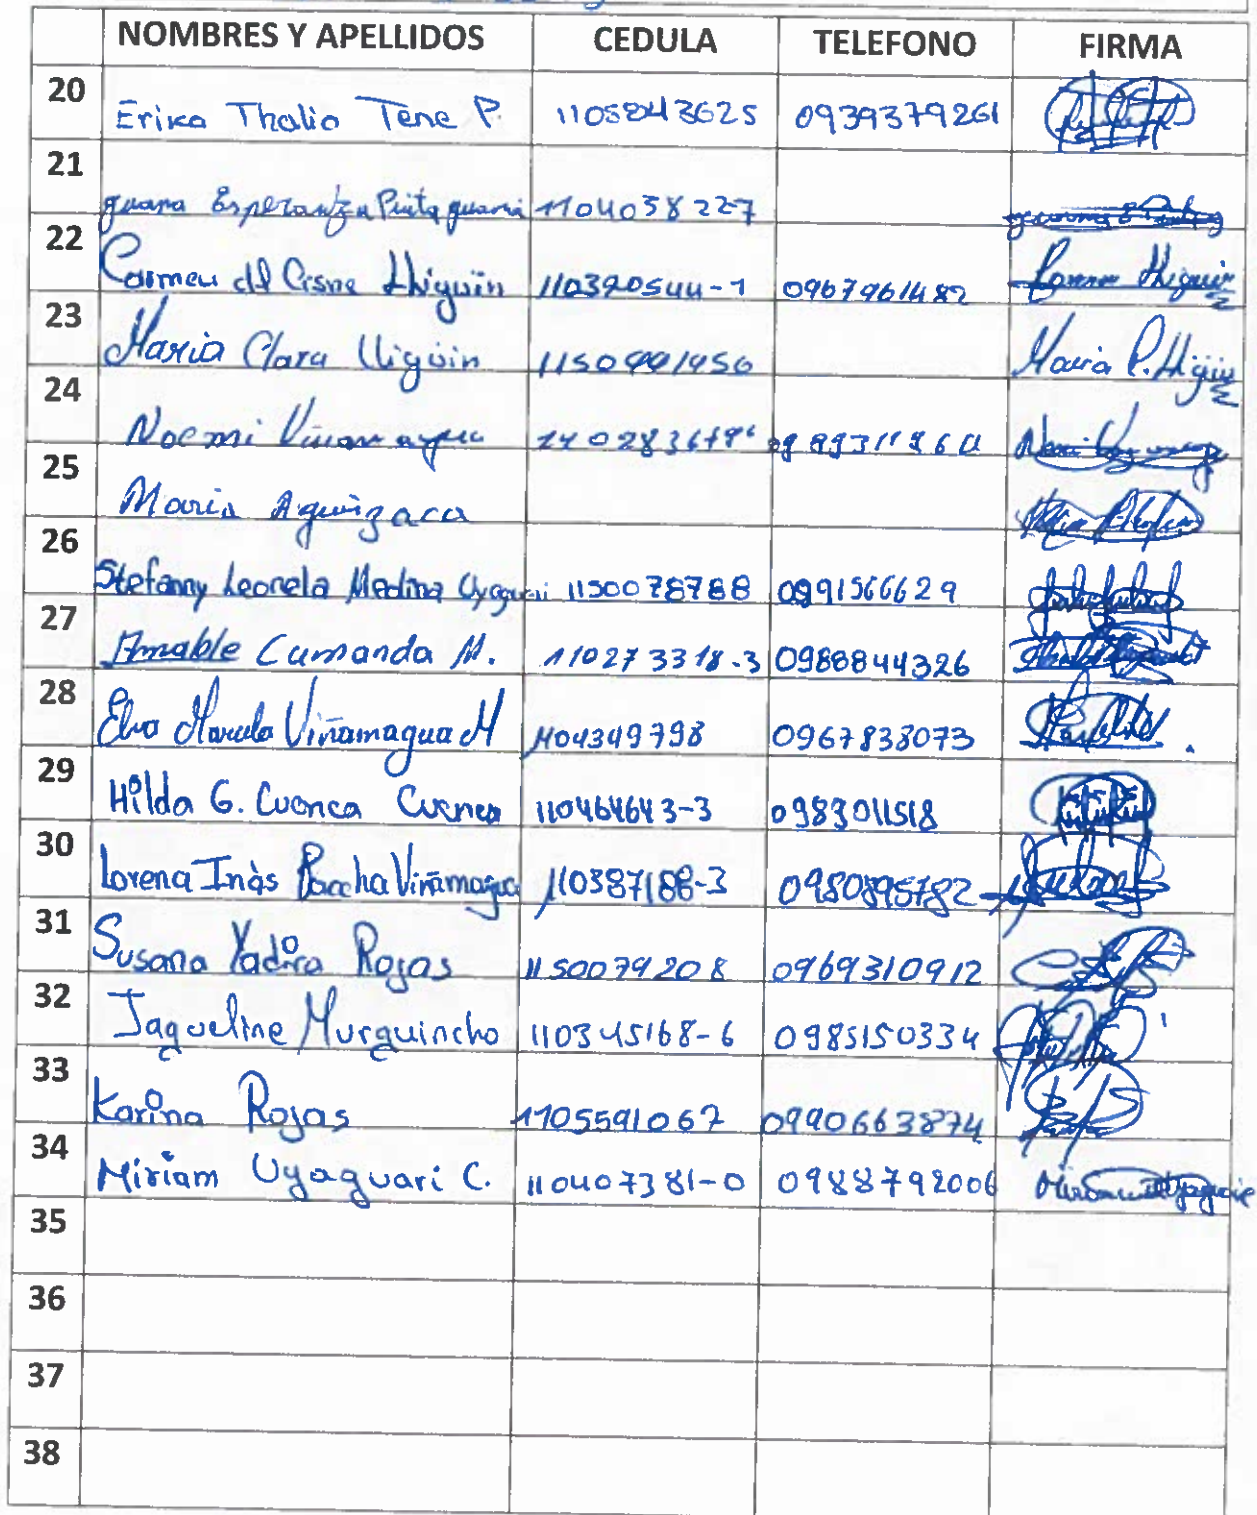 NOMBRES Y APELLIDOS CEDULA TELEFONO FIRMA
20 Erika Thalia Tene P. 1105843625 0939379261
21 Esperanza 1104058227
22 Carmen del Cisne Lliguin 110390544-1 0967961482 Carmen Lliguin
23 Maria Clara Lliguin Maria C. Lliguin
24 Noemi Vinamagua
25 Maria Aguizaca
26 Stefanny Leonela Medina 1150078788 0991566629
27 Amable Cumanda M. 110273318-3 0988844326
28 Elva Viñamagua M 1104349798 0967838073
29 Hilda G. Cuenca Cuenca 110464643-3 0983011518
30 Lorena Inès Paccha Viñamagua 110387188-3 0980895782
31 Susana Yadira Rojas 1150079208 0969310912
32 Jaqueline Murquincho 110345168-6 0985150334
33 Karina Rojas 1105591067 0990663874
34 Miriam Uyaguari C. 110407381-0 0988792006
35
36
37
38